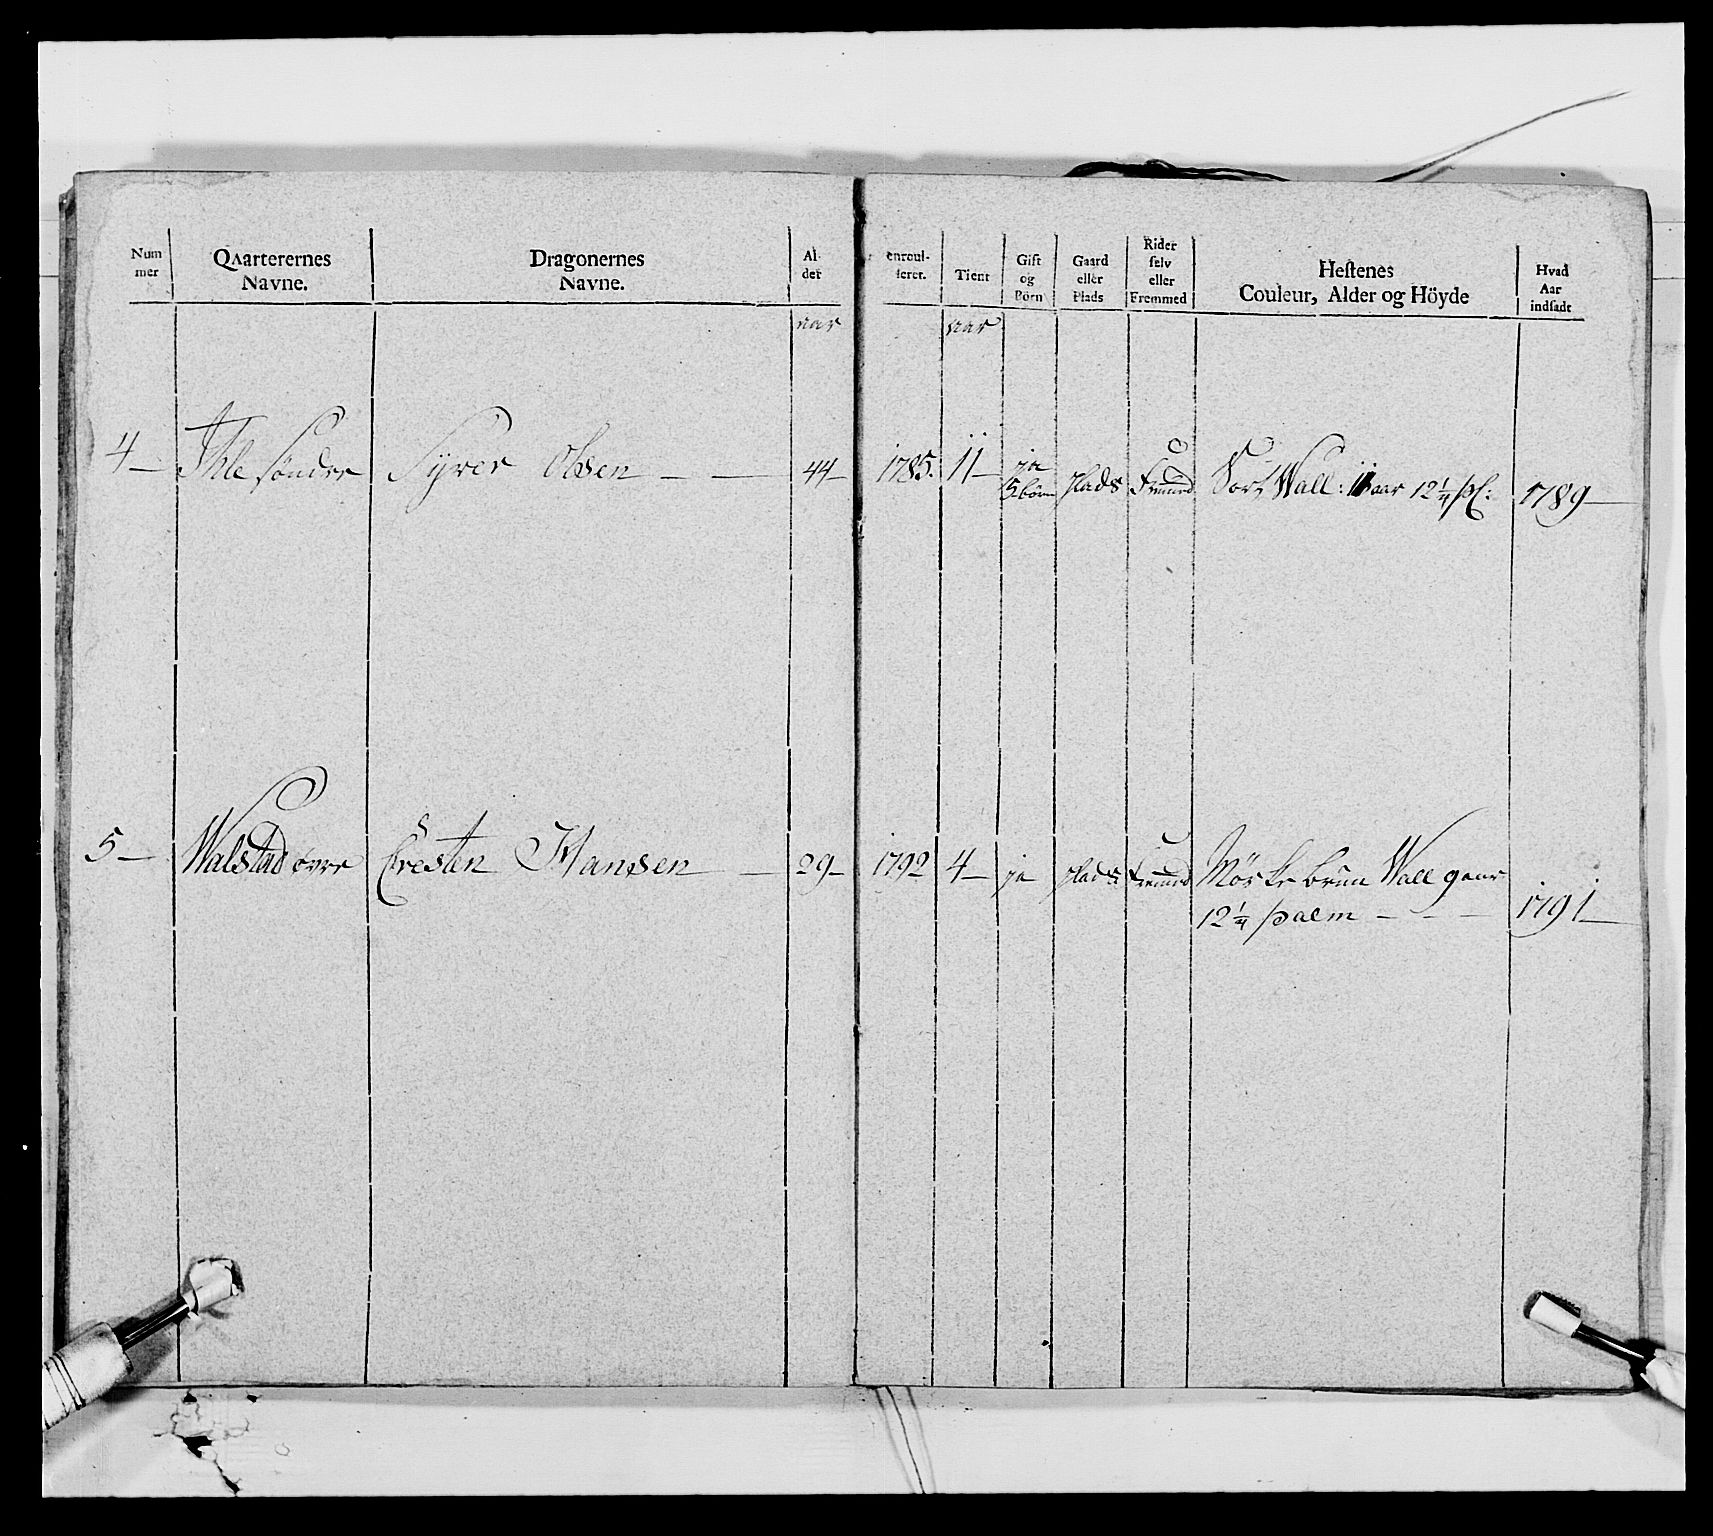 Num
mer
Qvarterernes
Navne.
Dragonernes
Navne.
Al-
der
enroul-
leret.
Tient
Gift
og
Börn
Gaard
eller
Plads
Rider
selv
eller
Fremmed
Hestenes
Couleur, Alder og Höyde
Hvad
Aar
indsadt
aar
aar
4 — Ihle søndre Syver Olsen — — 44 — 1785. 11 — ja 5 børn plads Fremed Sort Wall: 11 aar 12¼ pl: 1789 —
5 — Walstad øvre Cresten Hansen — 29 — 1792 4 — ja plads Fremed Mørkebrun Wall 9 aar
12¼ palm — — — 1791 —